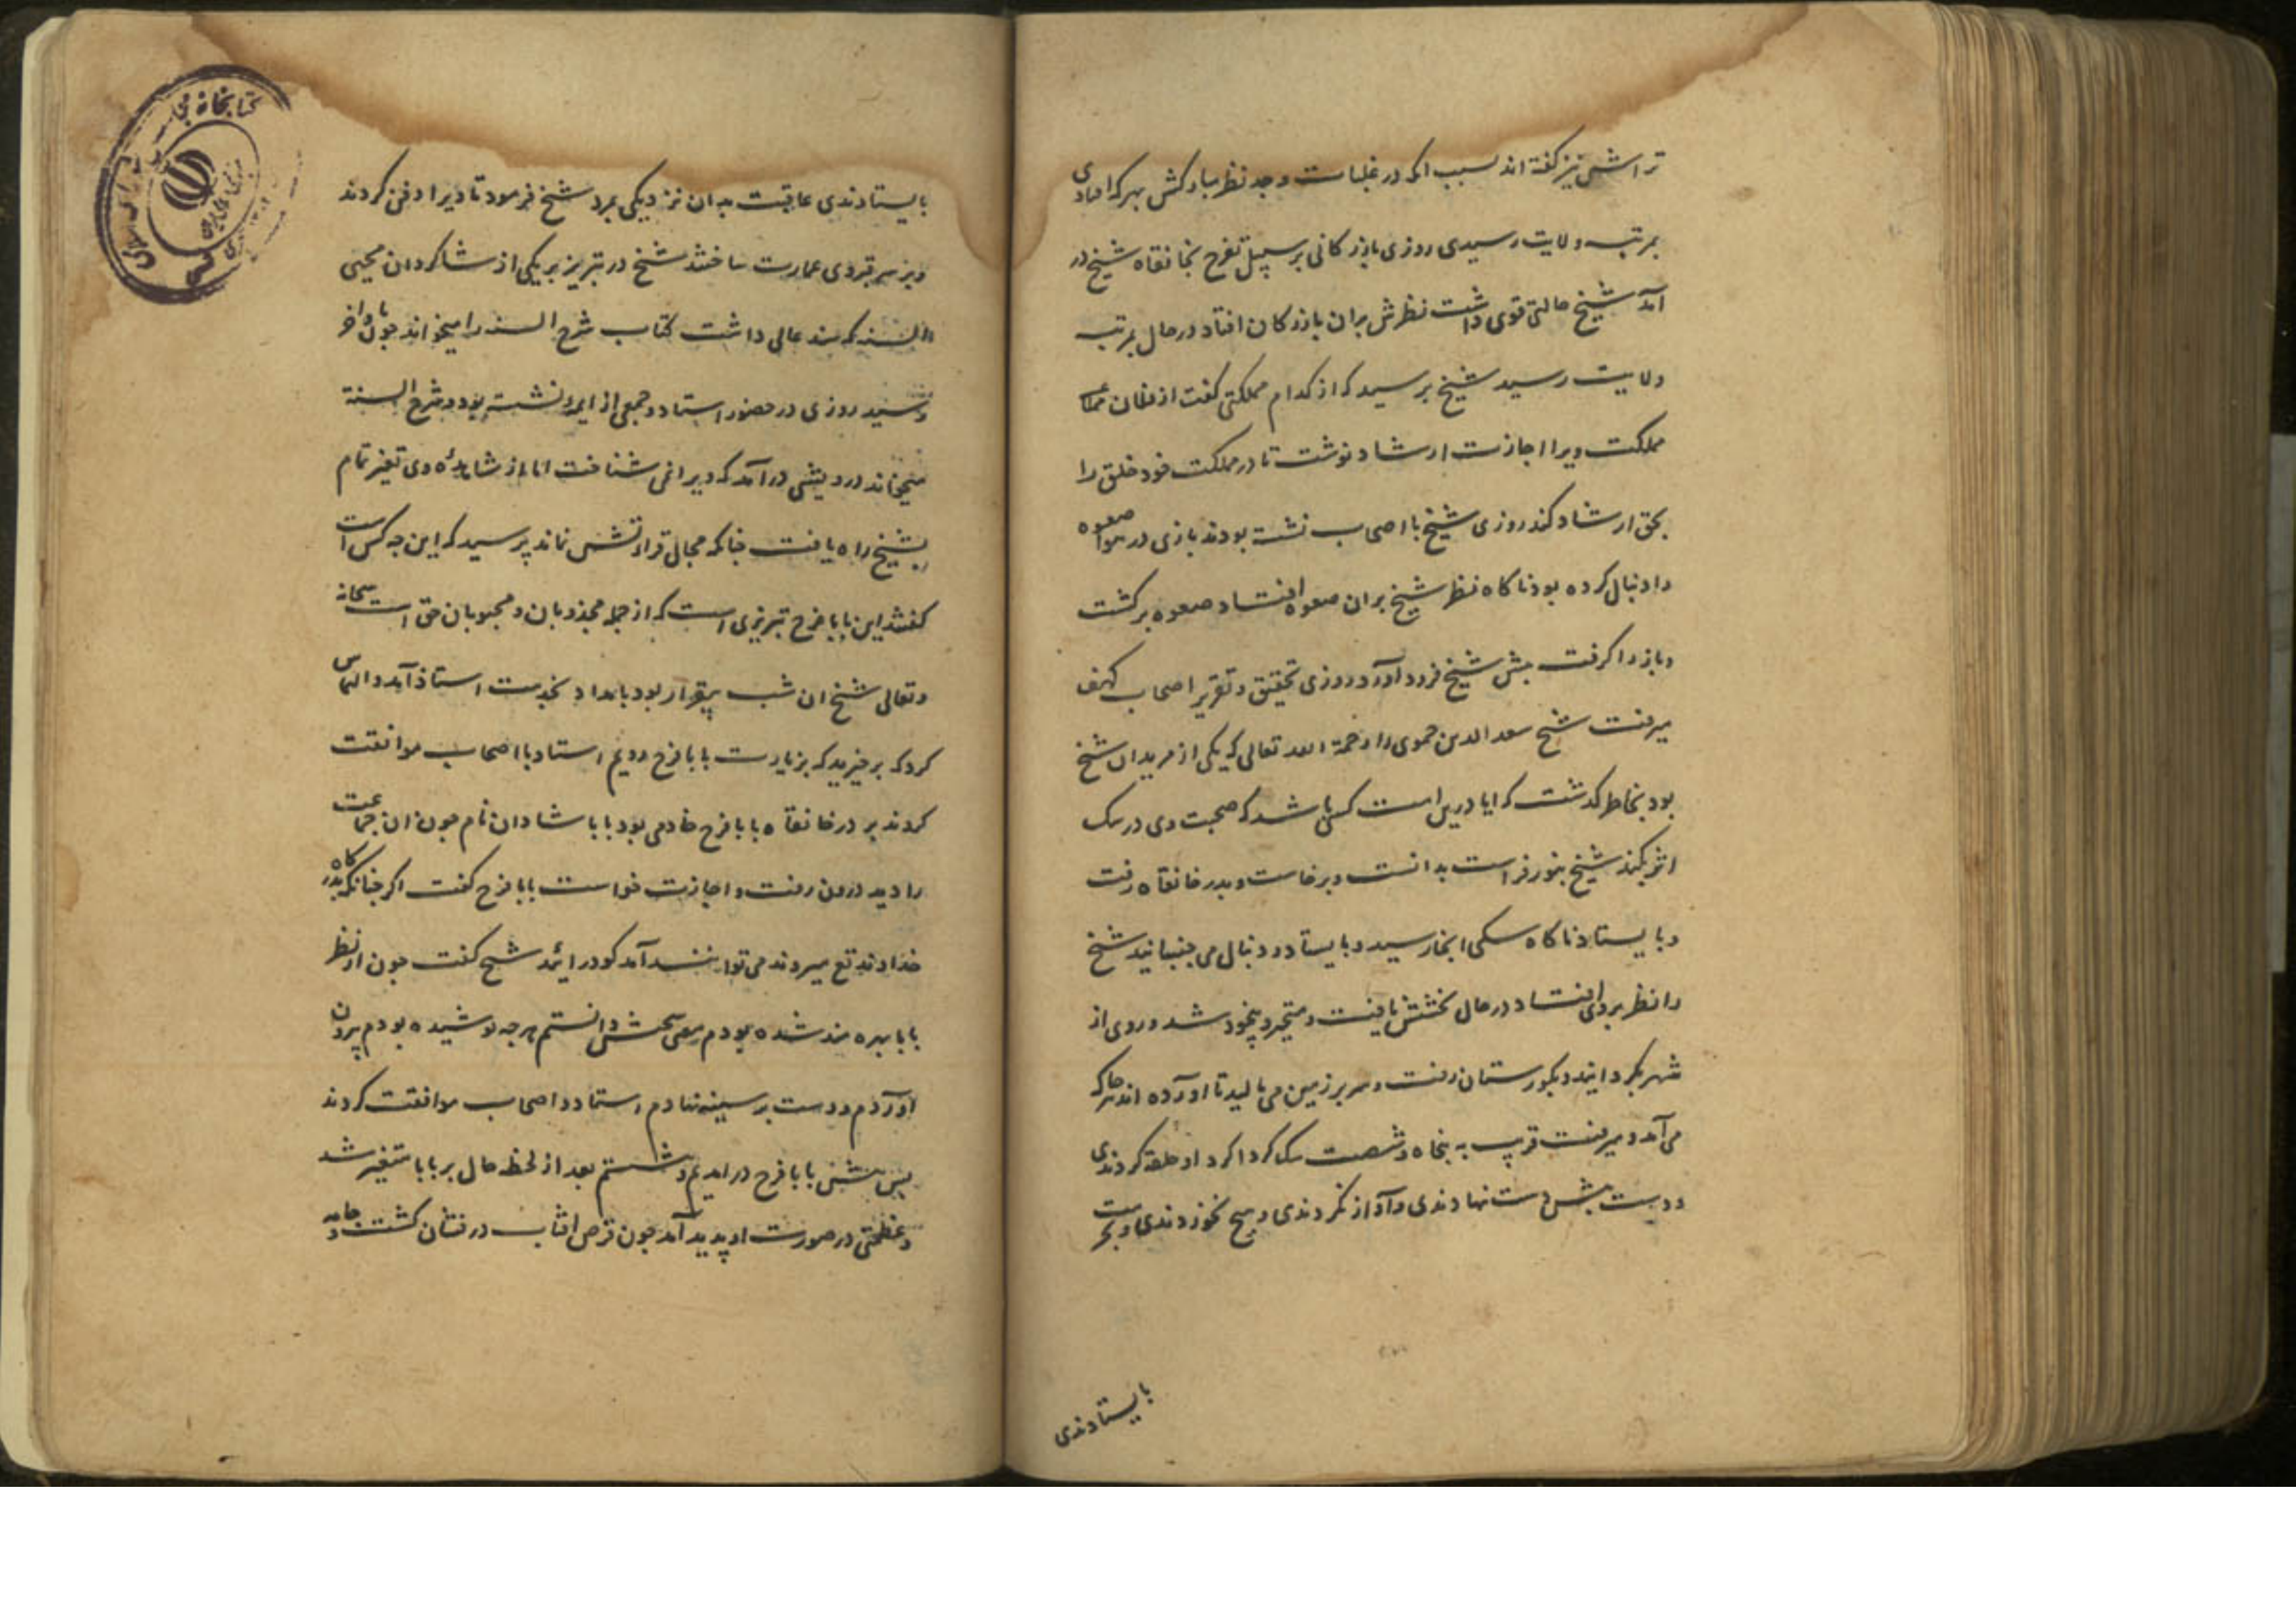 تراشش نیز گفته اند بسبب انکه در غلبات وجد نظر مبارکش بهر که افتادی
بمرتبه ولایت رسیدی روزی بازرکانی بر سبیل تفرج بخانقاه شیخ در
آمد شیخ حالتی قوی داشت نظرش بران بازرکان افتاد در حال بمرتبه
ولایت رسید شیخ پرسید که از کدام مملکتی گفت از فلان
مملکت ویرا اجازت ارشاد نوشت تا در مملکت خود خلق را
بحق ارشاد کند روزی شیخ با اصحاب نشسته بودند بازی در هوا صعوه
را دنبال کرده بود ناکاه نظر شیخ بران صعوه افتاد صعوه برکشت
و باز را کرفت پیش شیخ فرود آورد روزی تحقیق و تقریر اصحاب کهف
میرفت شیخ سعد الدین حموی را رحمة الله تعالی که یکی از مریدان شیخ
بود بخاطر کذشت که ایا درین امت کسی باشد که صحبت وی در سک
اثر بکند شیخ بنور فراست بدانست و برخاست و بدر خانقاه رفت
و بایستاد ناکاه سکی انجا رسید و بایستاد و دنبال می جنبانید شیخ
را نظر بروی افتاد در حال بخشش یافت و متحیر و بیخود شد و روی از
شهر بکردانید و بکورستان رفت و سر بر زمین می مالید تا اورده اند که هر جا که
می آمد و میرفت قریب به پنجاه و شصت سک کردا کرد او حلقه کردندی
و دست پیش دست نهادندی و آواز نکردندی و هیچ نخوردندی و بحرمت
بایستادندی
کتابخانه مجلس
بایستادندی عاقبت بدان نزدیکی بمرد شیخ فرمود تا ویرا دفن کردند
و بر سر قبر وی عمارت ساختند شیخ در تبریز بر یکی از شاکردان محیی
السنه که سند عالی داشت کتاب شرح السنه را میخواند چون باواخر
رسید روزی در حضور استاد و جمعی از ایمه نشسته بود و شرح السنة
میخواند درویشی درآمد که ویرا نمی شناخت اما از مشاهده وی تغیر تمام
بشیخ راه یافت چنانکه مجال قراءتش نماند پرسید که این چه کس است
کفتند این بابا فرح تبریزی است که از جمله مجذوبان و محبوبان حق است سبحانه
و تعالی شیخ ان شب بیقرار بود بامداد بخدمت استاذ آمد و التماس
کرد که برخیزید که بزیارت بابا فرح رویم استاد با اصحاب موافقت
کردند بر در خانقاه بابا فرح خادمی بود بابا شادان نام چون ان جماعت
را دید درون رفت و اجازت خواست بابا فرح کفت اکر چنانکه بدرکاه
خداوند تع میروند می توانند آمد کو درائید شیخ کفت چون از نظر
بابا بهره مند شده بودم معنی سخنش دانستم هر چه پوشیده بودم بیرون
آوردم و دست بر سینه نهادم استاد و اصحاب موافقت کردند
پس پیش بابا فرح درامدیم و نشستیم بعد از لحظه حال بر بابا متغیر شد
و عظمتی در صورت او پدید آمد چون قرص افتاب درفشان کشت و جامه